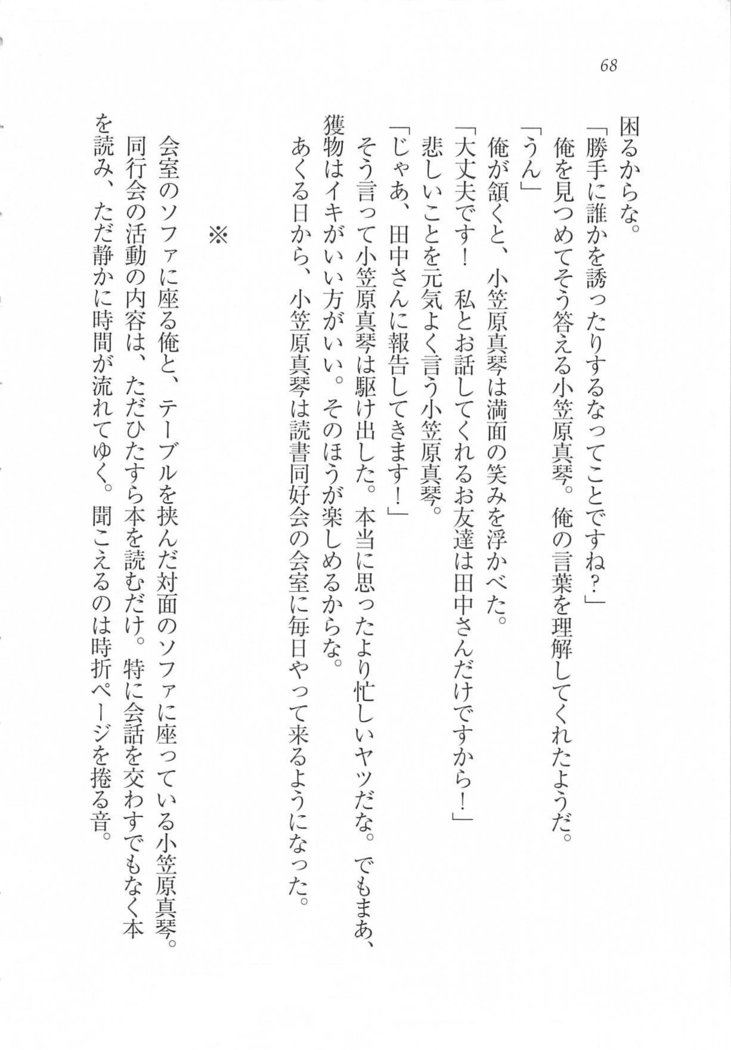 68
困るからな。
「勝手に誰かを誘ったりするなってことですね？」
俺を見つめてそう答える小笠原真琴。俺の言葉を理解してくれたようだ。
「うん」
俺が頷くと、小笠原真琴は満面の笑みを浮かべた。
「大丈夫です！　私とお話してくれるお友達は田中さんだけですから！」
悲しいことを元気よく言う小笠原真琴。
「じゃあ、田中さんに報告してきます！」
そう言って小笠原真琴は駆け出した。本当に思ったより忙しいヤツだな。でもまあ、
獲物はイキがいい方がいい。そのほうが楽しめるからな。
あくる日から、小笠原真琴は読書同好会の会室に毎日やって来るようになった。
※
会室のソファに座る俺と、テーブルを挟んだ対面のソファに座っている小笠原真琴。
同行会の活動の内容は、ただひたすら本を読むだけ。特に会話を交わすでもなく本
を読み、ただ静かに時間が流れてゆく。聞こえるのは時折ページを捲る音。